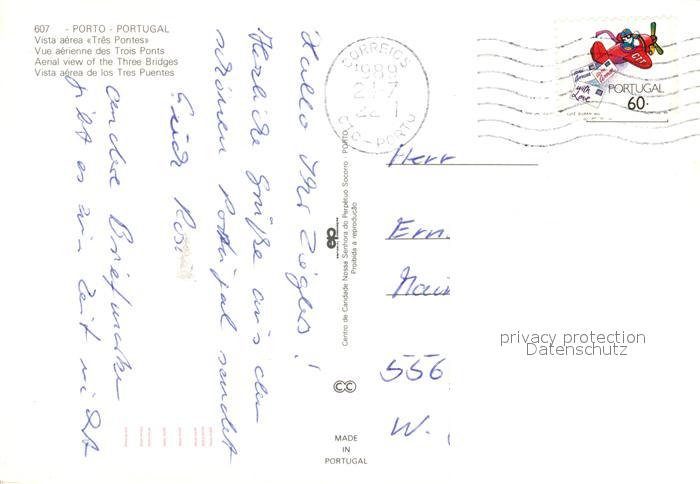 607 - PORTO - PORTUGAL
Vista aérea «Três Pontes»
Vue aérienne des Trois Ponts
Aerial view of the Three Bridges
Vista aérea de los Tres Puentes
Hallo Ihr Zieglers!
Herzliche Grüße aus dem
schönen Portugal sendet
Euch Rosi
andere Briefmarken
gibt es zur Zeit nicht
CORREIOS
1989
CTC - PORTO
with Love
CTT
PORTUGAL
60.
Centro de Caridade Nossa Senhora do Perpétuo Socorro - PORTO
Proibida a reprodução
MADE
IN
PORTUGAL
Herr
Ern.
556
W.
privacy protection
Datenschutz